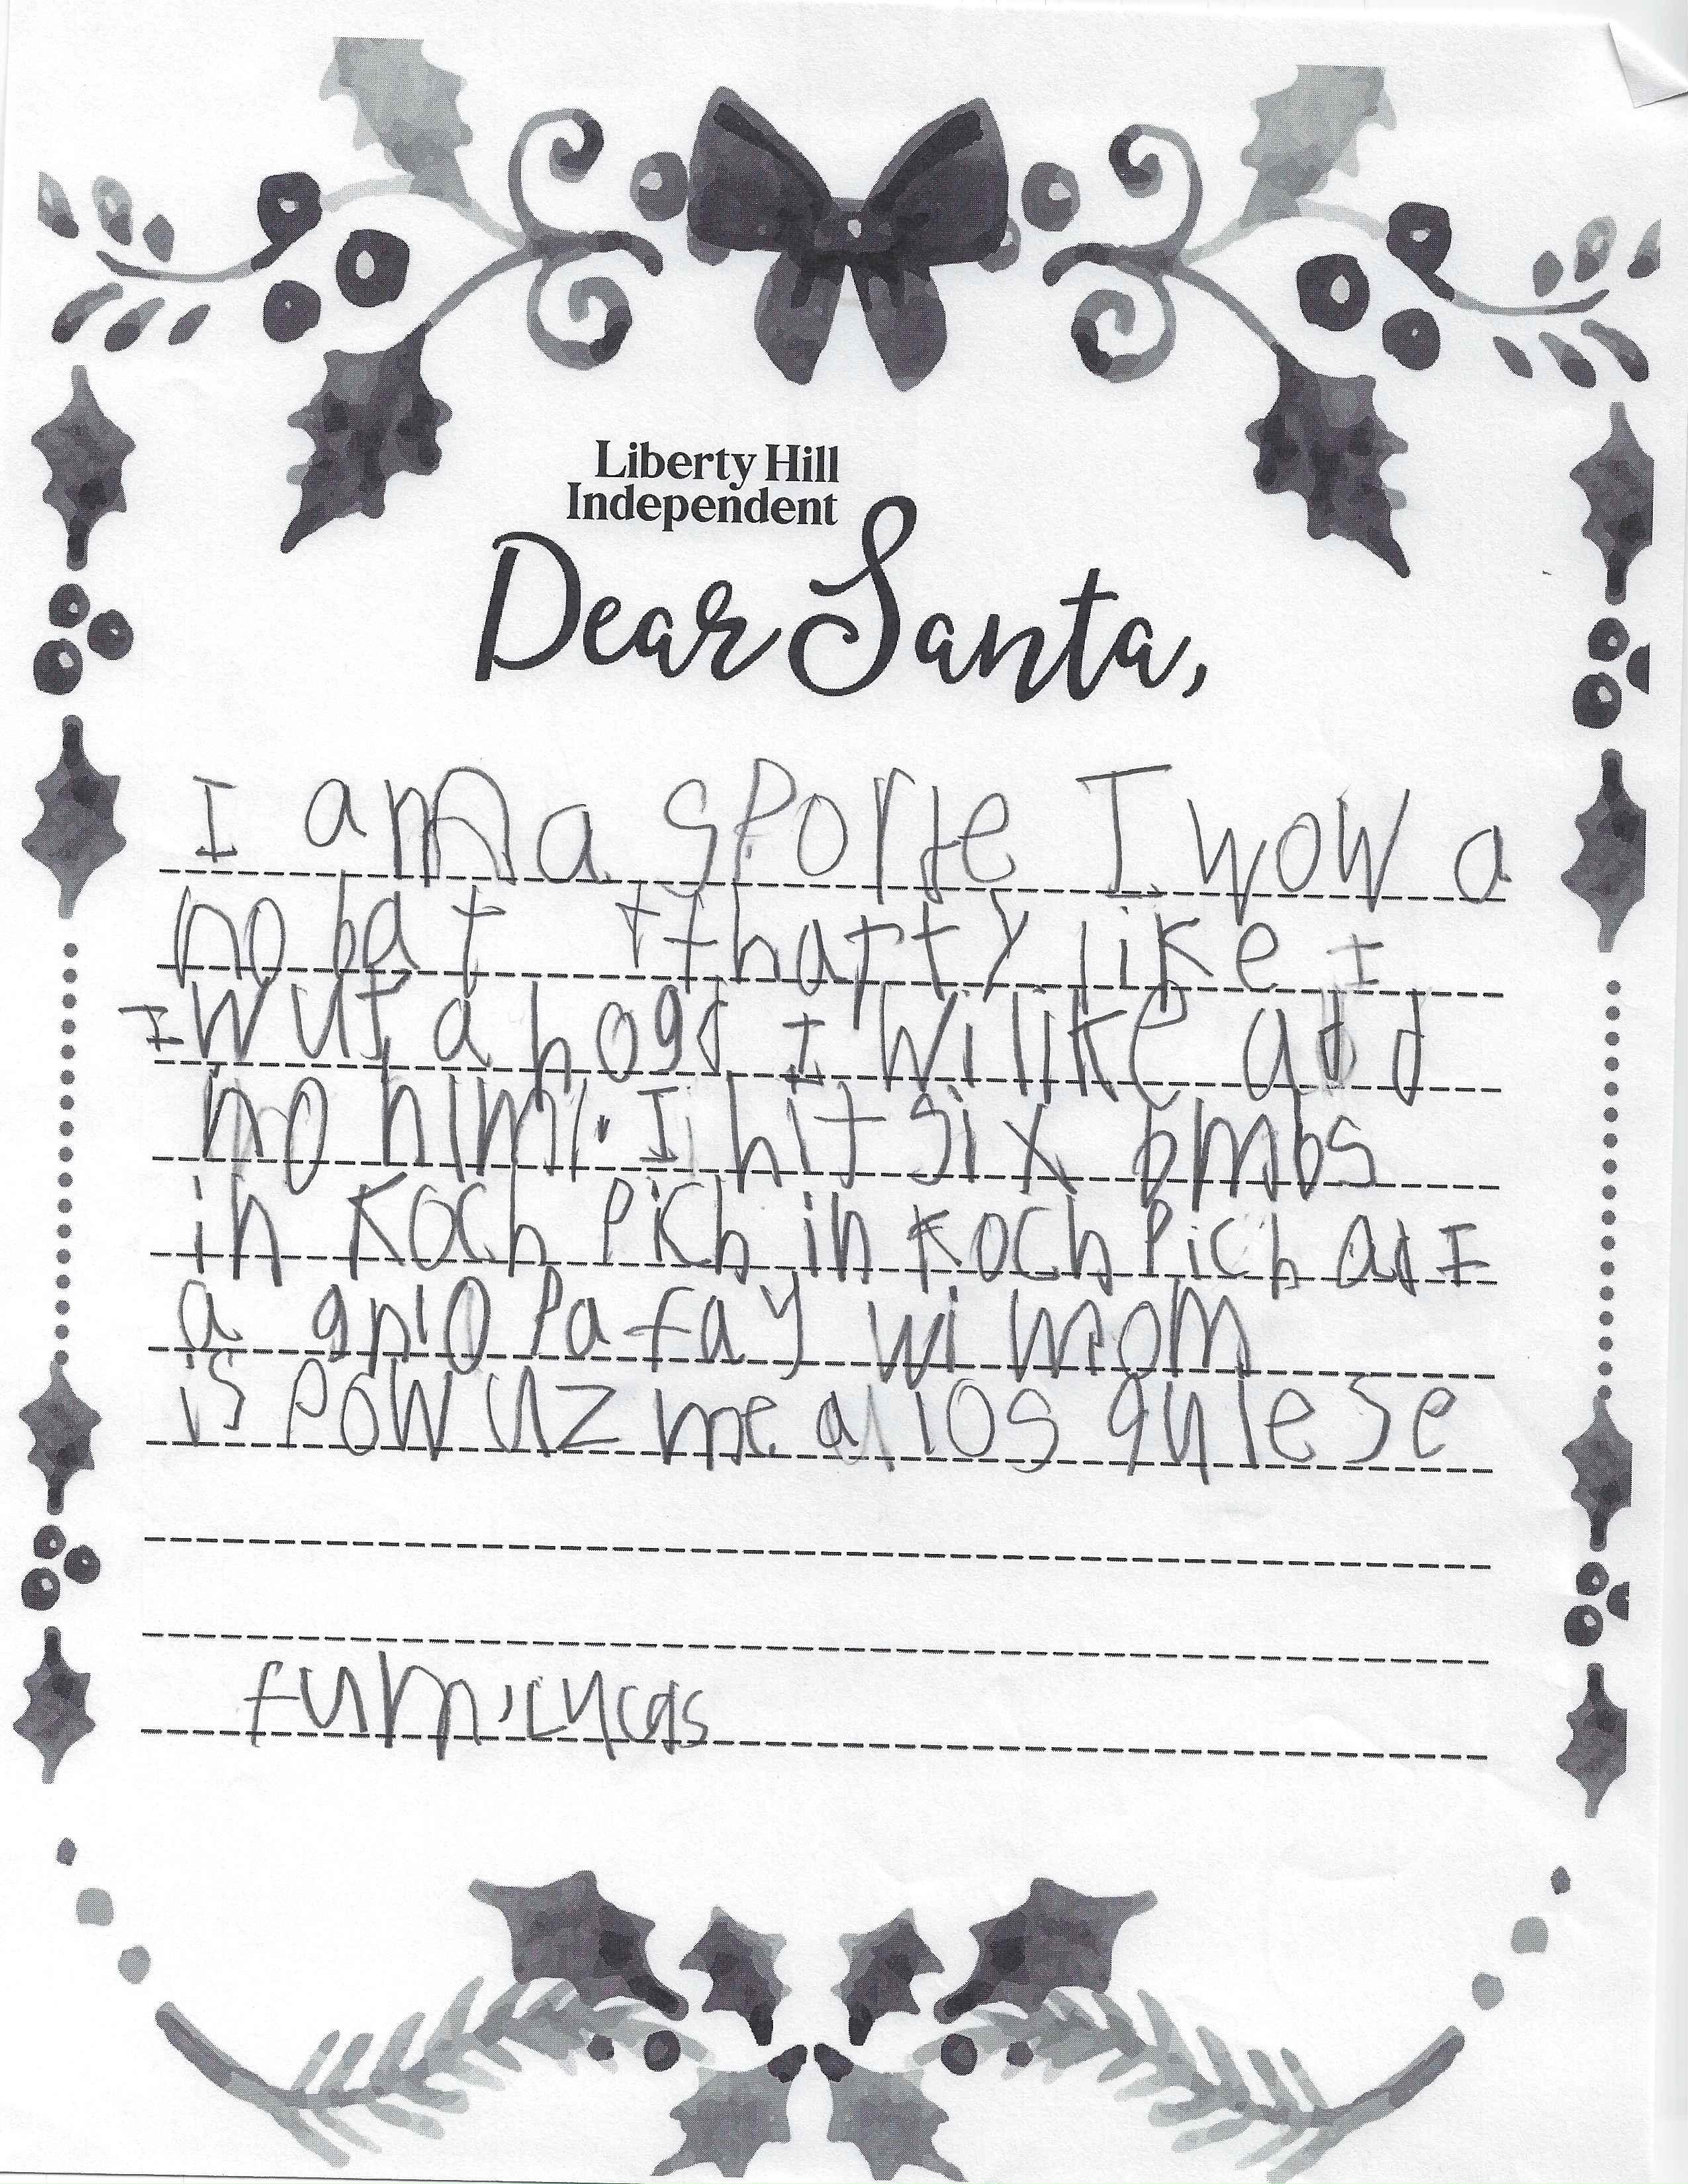 Liberty Hill
Independent
Dear Santa,
I am a sporte I wow a
no bat tthatty like I
I wut a hogd I wi like add
no him. I hit six bmbs
in Koch Pich in Koch Pich ad I
a gnio Pa fay wi mom
is Pow uz me a los gulese
fum, Lucas